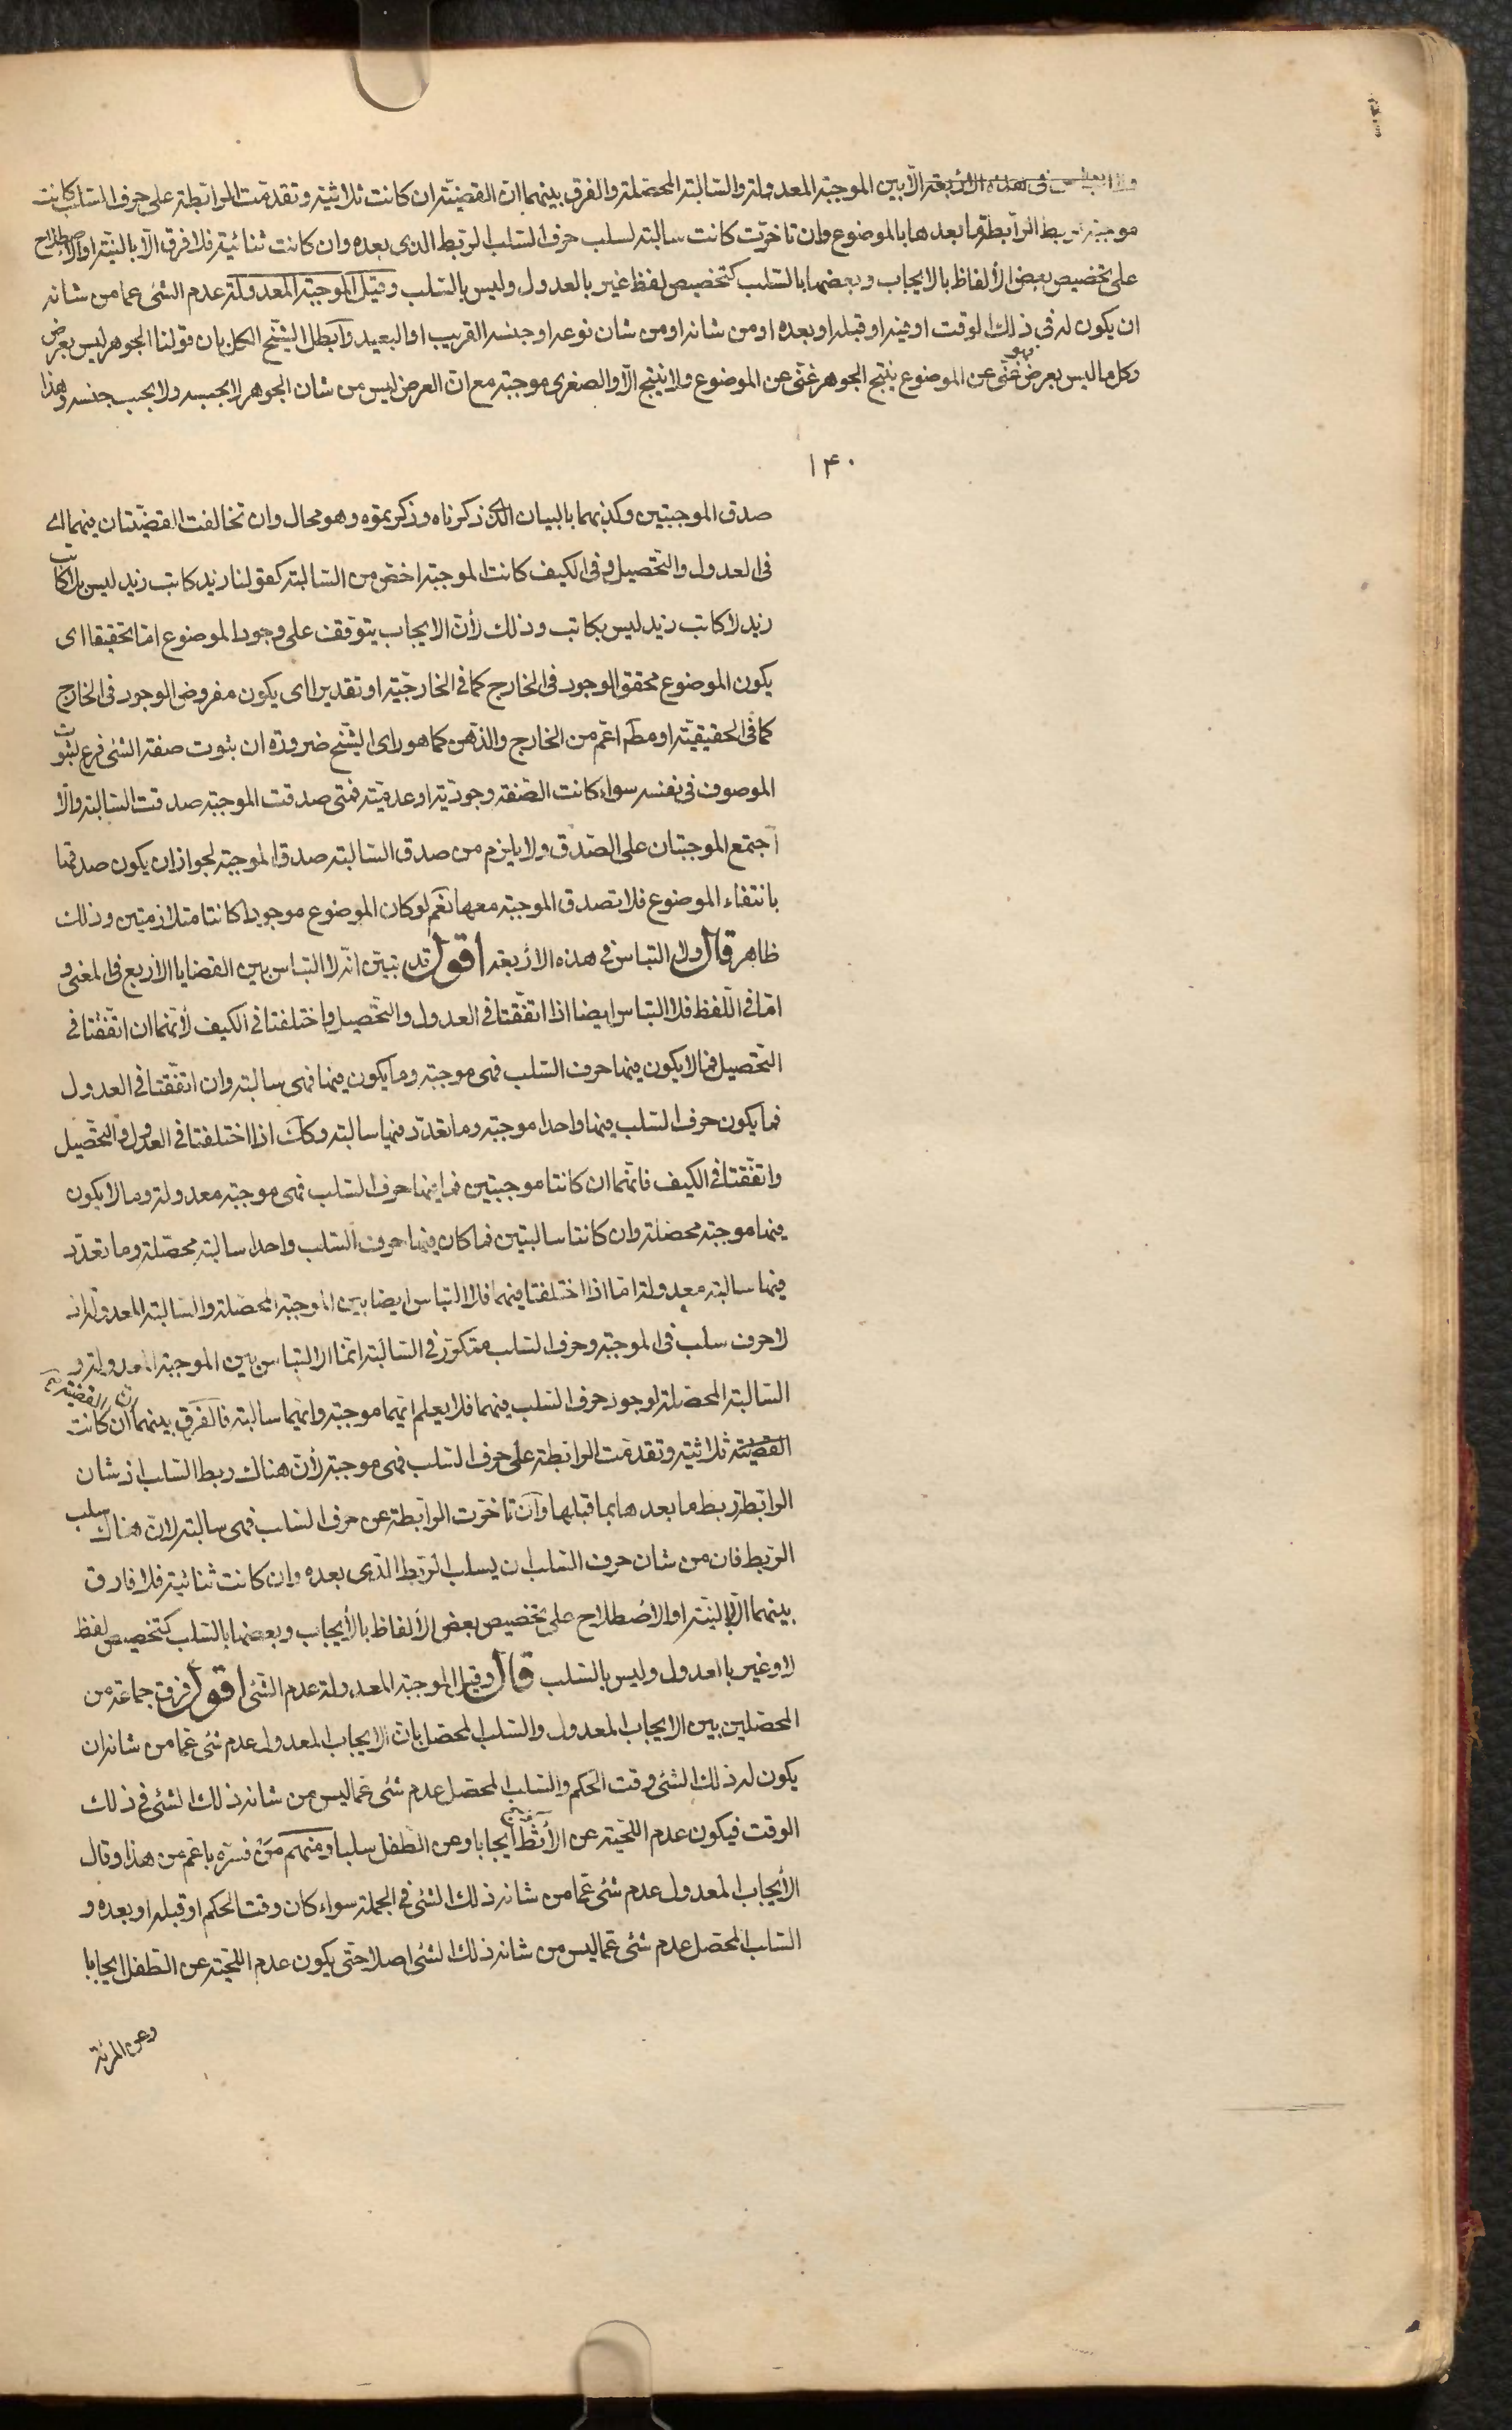 ولا التباس فى هذه الأربعة الّا بين الموجبة المعدولة والسّالبة المحصّلة والفرق بينهما انّ القضيّة ان كانت ثلاثية وتقدمت الرابطة على حرف السّلب كانت
موجبة لربط الرّابطة ما بعدها بالموضوع وان تاخرّت كانت سالبة لسلب حرف السّلب الرّبط الذى بعده وان كانت ثنائية فلا فرق الّا بالنيّة او الاصطلاح
على تخصيص بعض الألفاظ بالايجاب وبعضها بالسّلب كتخصيص لفظ غير بالعدول وليس بالسّلب وقيل الموجبة المعدولة عدم الشئ عما من شانه
ان يكون له فى ذلك الوقت او فيه او قبله او بعده او من شانه او من شان نوعه او جنسه القريب او البعيد وابطل الشّيخ الكل بان قولنا الجوهر ليس بعرض
وكل ما ليس بعرض فهو غنى عن الموضوع ينتج الجوهر غنى عن الموضوع ولا ينتج الّا والصغرى موجبة مع انّ العرض ليس من شان الجوهر لا بحسبه ولا بحسب جنسه وهذا
۱۴۰
صدق الموجبتين وكذبهما بالبيان الذى ذكرناه وذكر نموّه وهو محال وان تخالفت القضيّتان فيهما اى
فى العدول والتّحصيل وفى الكيف كانت الموجبة اخصّ من السّالبة كقولنا زيد كاتب زيد ليس بلا كاتب
زيد لا كاتب زيد ليس بكاتب وذلك لأنّ الايجاب يتوقف على وجود الموضوع امّا تحقيقا اى
يكون الموضوع محقق الوجود فى الخارج كما فى الخارجيّة او تقديرا اى يكون مفروض الوجود فى الخارج
كما فى الحقيقيّة او مطه اعّم من الخارج والذّهن كما هو راى الشّيخ ضرورة ان ثبوت صفة الشئ فرع لثبوت
الموصوف فى نفسه سواء كانت الصّفة وجوديّة او عدميّة فمتى صدقت الموجبة صدقت السّالبة والّا
اجتمع الموجبتان على الصّدق ولا يلزم من صدق السّالبة صدق الموجبة لجواز ان يكون صدقها
بانتفاء الموضوع فلا تصدق الموجبة معها نعم لو كان الموضوع موجودا كانتا متلازمتين وذلك
ظاهر قال ولا التباس فى هذه الأربعة اقول قد تبيّن انّه لا التباس بين القضايا الأربع فى المعنى و
امّا فى اللّفظ فلا التباس ايضا اذا اتفّقتا فى العدول والتّحصيل واختلفتا فى الكيف لأنّهما ان اتفّقتا فى
التّحصيل فما لا يكون فيها حرف السّلب فهى موجبة وما يكون فيها فهى سالبة وان اتفّقتا فى العدول
فما يكون حرف السّلب فيها واحدا موجبة وما تعدّد فيها سالبة وكك اذا اختلفتا فى العدول والتّحصيل
واتفّقتا فى الكيف فانّهما ان كانتا موجبتين فما فيها حرف السّلب فهى موجبة معدولة وما لا يكون
فيها موجبة محصّلة وان كانتا سالبتين فما كان فيها حرف السّلب واحدا سالبة محصّلة وما تعدّد
فيها سالبة معدولة امّا اذا اختلفتا فيهما فلا التباس ايضا بين الموجبة المحصّلة والسّالبة المعدولة اذ
لا حرف سلب فى الموجبة وحرف السّلب متكرّر فى السّالبة انّما الالتباس بين الموجبة المعدولة و
السّالبة المحصّلة لوجود حرف السّلب فيهما فلا يعلم ايّهما موجبة وايّهما سالبة فالفرق بينهما ان القضيّة ان كانت
القضيّة ثلاثية وتقدمّت الرابطة على حرف السّلب فهى موجبة لأنّ هناك ربط السّلب اذ شان
الرابطة ربط ما بعدها بما قبلها وان تاخرّت الرّابطة عن حرف السّلب فهى سالبة لانّ هناك سلب
الرّبط فان من شان حرف السّلب ان يسلب الرّبط الّذى بعده وان كانت ثنائية فلا فارق
بينهما الّا بالنيّة او الاصطلاح على تخصيص بعض الألفاظ بالأيجاب وبعضها بالسّلب كتخصيص لفظ
لا وغير بالعدول وليس بالسّلب قال وقيل الموجبة المعدولة عدم الشئ اقول فرق جماعة من
المحصّلين بين الايجاب المعدول والسّلب المحصّل بانّ الايجاب المعدول عدم شئ عمّا من شانه ان
يكون له ذلك الشئ وقت الحكم والسّلب المحصّل عدم شئ عمّا ليس من شانه ذلك الشئ فى ذلك
الوقت فيكون عدم اللّحية عن الأثطّ ايجابا وعن الطّفل سلبا ومنهم من فسّره باعّم من هذا وقال
الأيجاب المعدول عدم شئ عمّا من شانه ذلك الشئ فى الجملة سواء كان وقت الحكم او قبله او بعده و
السّلب المحصّل عدم شئ عمّا ليس من شانه ذلك الشئ اصلا حتّى يكون عدم اللّحية عن الطّفل ايجابا
وعن المرئة